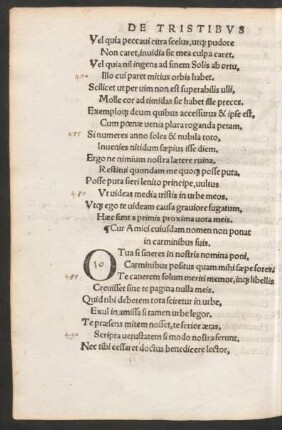 DE TRISTIBVS
Vel quia peccaui citra scelus, utq; pudore
Non caret, inuidia sic mea culpa caret.
Vel quia nil ingens ad finem Solis ab ortu,
Illo cui paret mitius orbis habet.
Scilicet ut per uim non est superabilis ulli,
Molle cor ad timidas sic habet ille preces.
Exemploq; deum quibus accessurus & ipse est,
Cum pœnæ uenia plura roganda petam.
Si numeres anno soles & nubila toto,
Inuenies nitidum sæpius isse diem.
Ergo ne nimium nostra lætere ruina,
Restitui quondam me quoq; posse puta.
Posse puta fieri lenito principe, uultus
Vt uideas media tristis in urbe meos.
Vtq; ego te uideam causa grauiore fugatum,
Hæc sunt a primis proxima uota meis.
¶Cur Amici cuiusdam nomen non ponat
in carminibus suis.
O Tua si sineres in nostris nomina poni,
Carminibus positus quam mihi sæpe fores.
Te canerem solum meriti memor, inq; libellis
Creuisset sine te pagina nulla meis.
Quid tibi deberem tota sciretur in urbe,
Exul in amissa si tamen urbe legor.
Te præsens mitem nosset, te serior ætas,
Scripta uetustatem si modo nostra ferunt.
Nec tibi cessaret doctus benedicere lector,